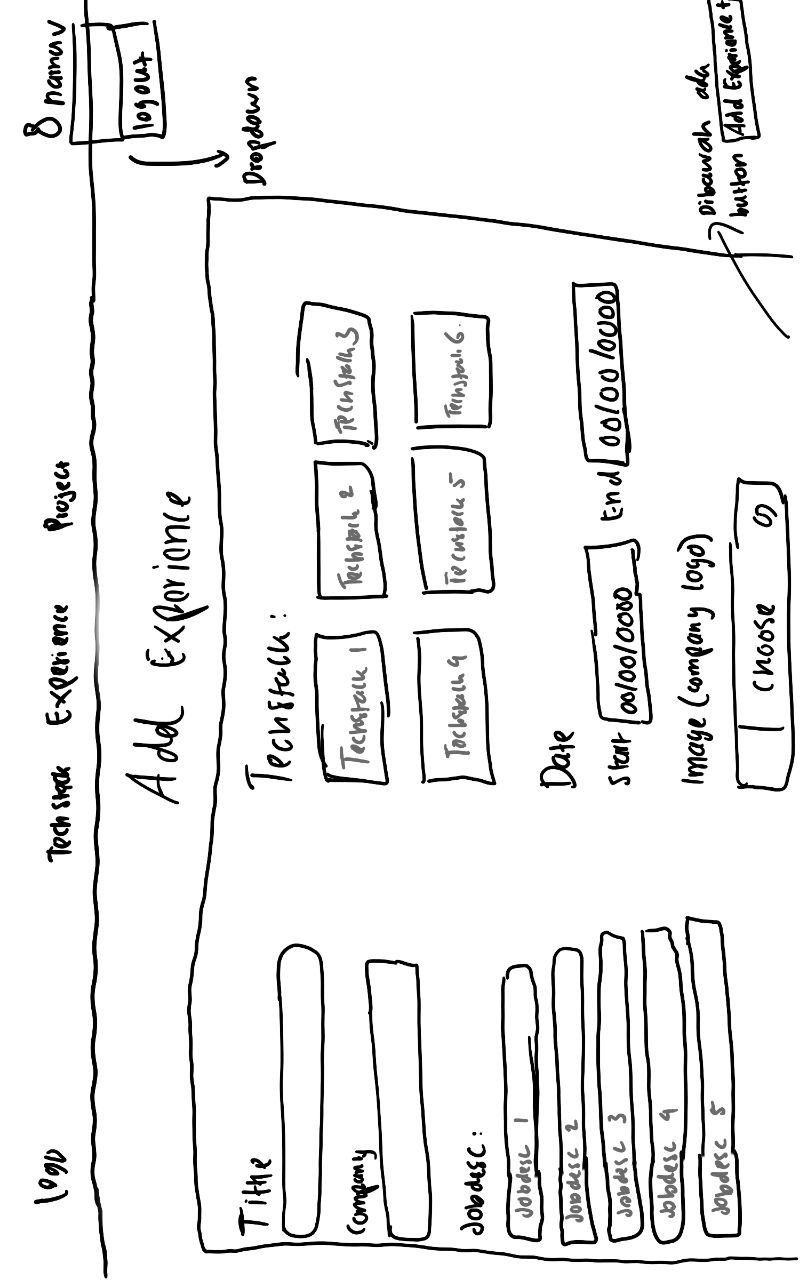 Logo
Techstack Experience Project
nama
logout
Dropdown
Add Experience
Tithe
Company
Jobdesc:
Jobdesc 1
Jobdesc 2
Jobdesc 3
Jobdesc 4
Jobdesc 5
Techstack:
Techstack 1 Techstack 2 Techstack 3
Techstack 4 Techstack 5 Techstack 6.
Date
Start 00/00/0000 End 00/00/0000
Image (company logo)
Choose
Dibawah ada
button Add Experience +